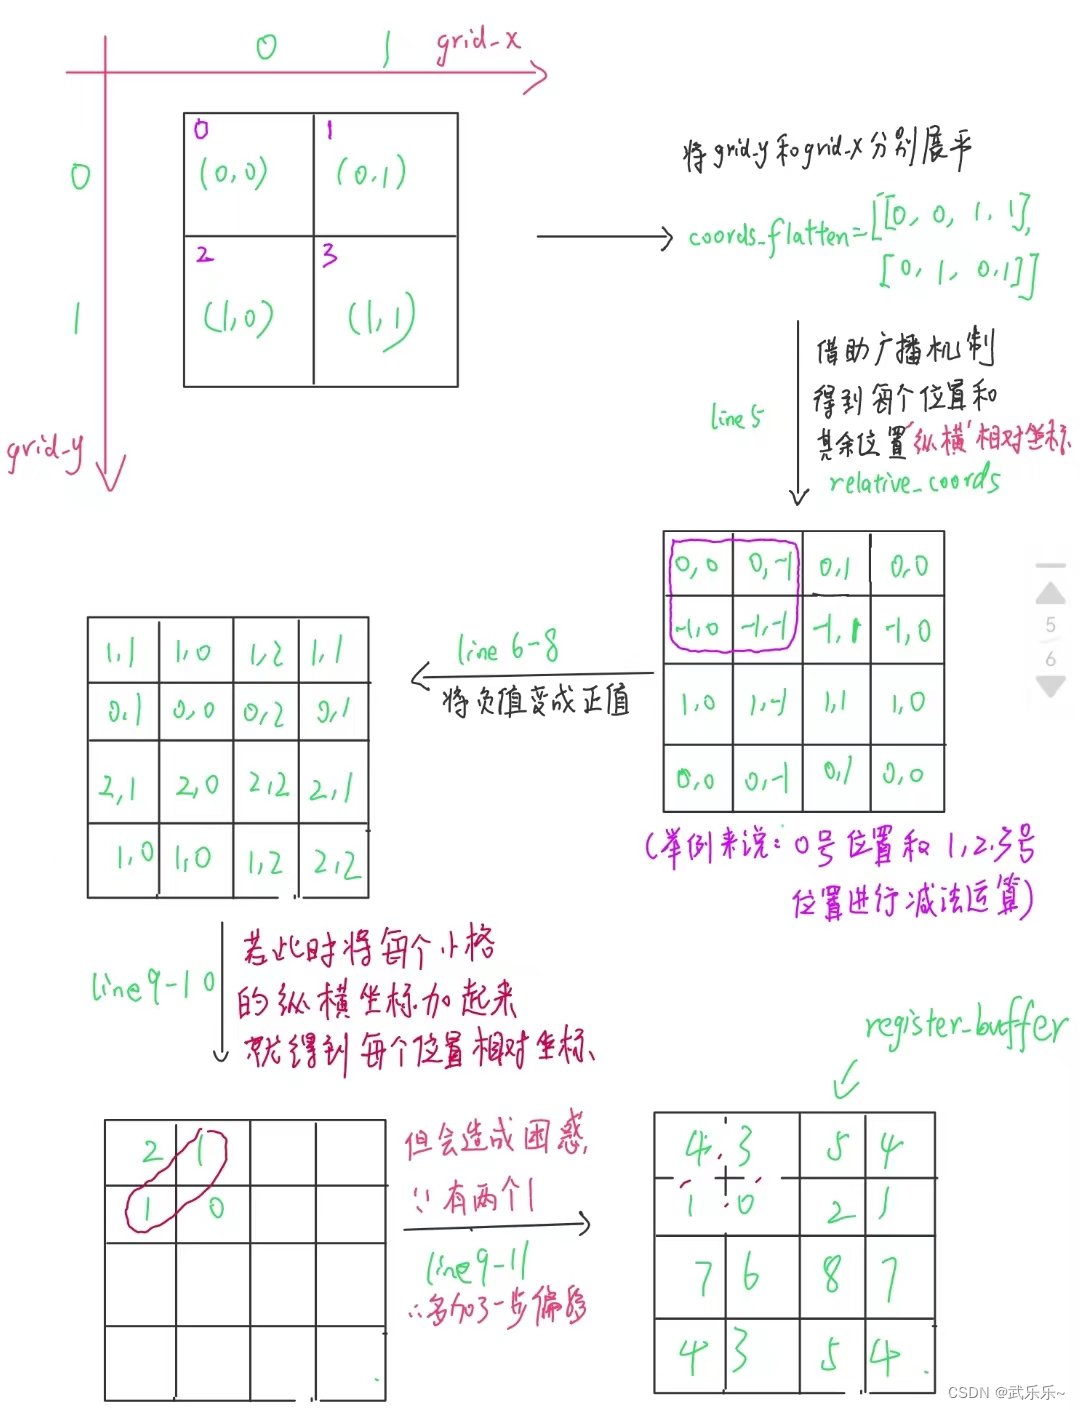 0 1 grid_x
0 1
0 (0,0) (0,1)
2 3
1 (1,0) (1,1)
grid_y
将grid_y和grid_x分别展平
coords_flatten=[[0, 0, 1, 1],
[0, 1, 0,1]]
line5
借助广播机制
得到每个位置和
其余位置"纵横"相对坐标
relative_coords
0,0 0,-1 0,1 0,0
-1,0 -1,-1 -1,1 -1,0
1,0 1,-1 1,1 1,0
0,0 0,-1 0,1 0,0
(举例来说:0号位置和1,2.3号
位置进行减法运算)
5
6
line 6-8
将负值变成正值
1,1 1,0 1,2 1,1
0,1 0,0 0,2 0,1
2,1 2,0 2,2 2,1
1,0 1,0 1,2 2,2
line9-10
若此时将每个小格
的纵横坐标加起来
就得到每个位置相对坐标、
2 1
1 0
但会造成困惑,
∵有两个1
line9-11
∴多加了一步偏移
register_buffer
4 3 5 4
1 0 2 1
7 6 8 7
4 3 5 4
CSDN @武乐乐~